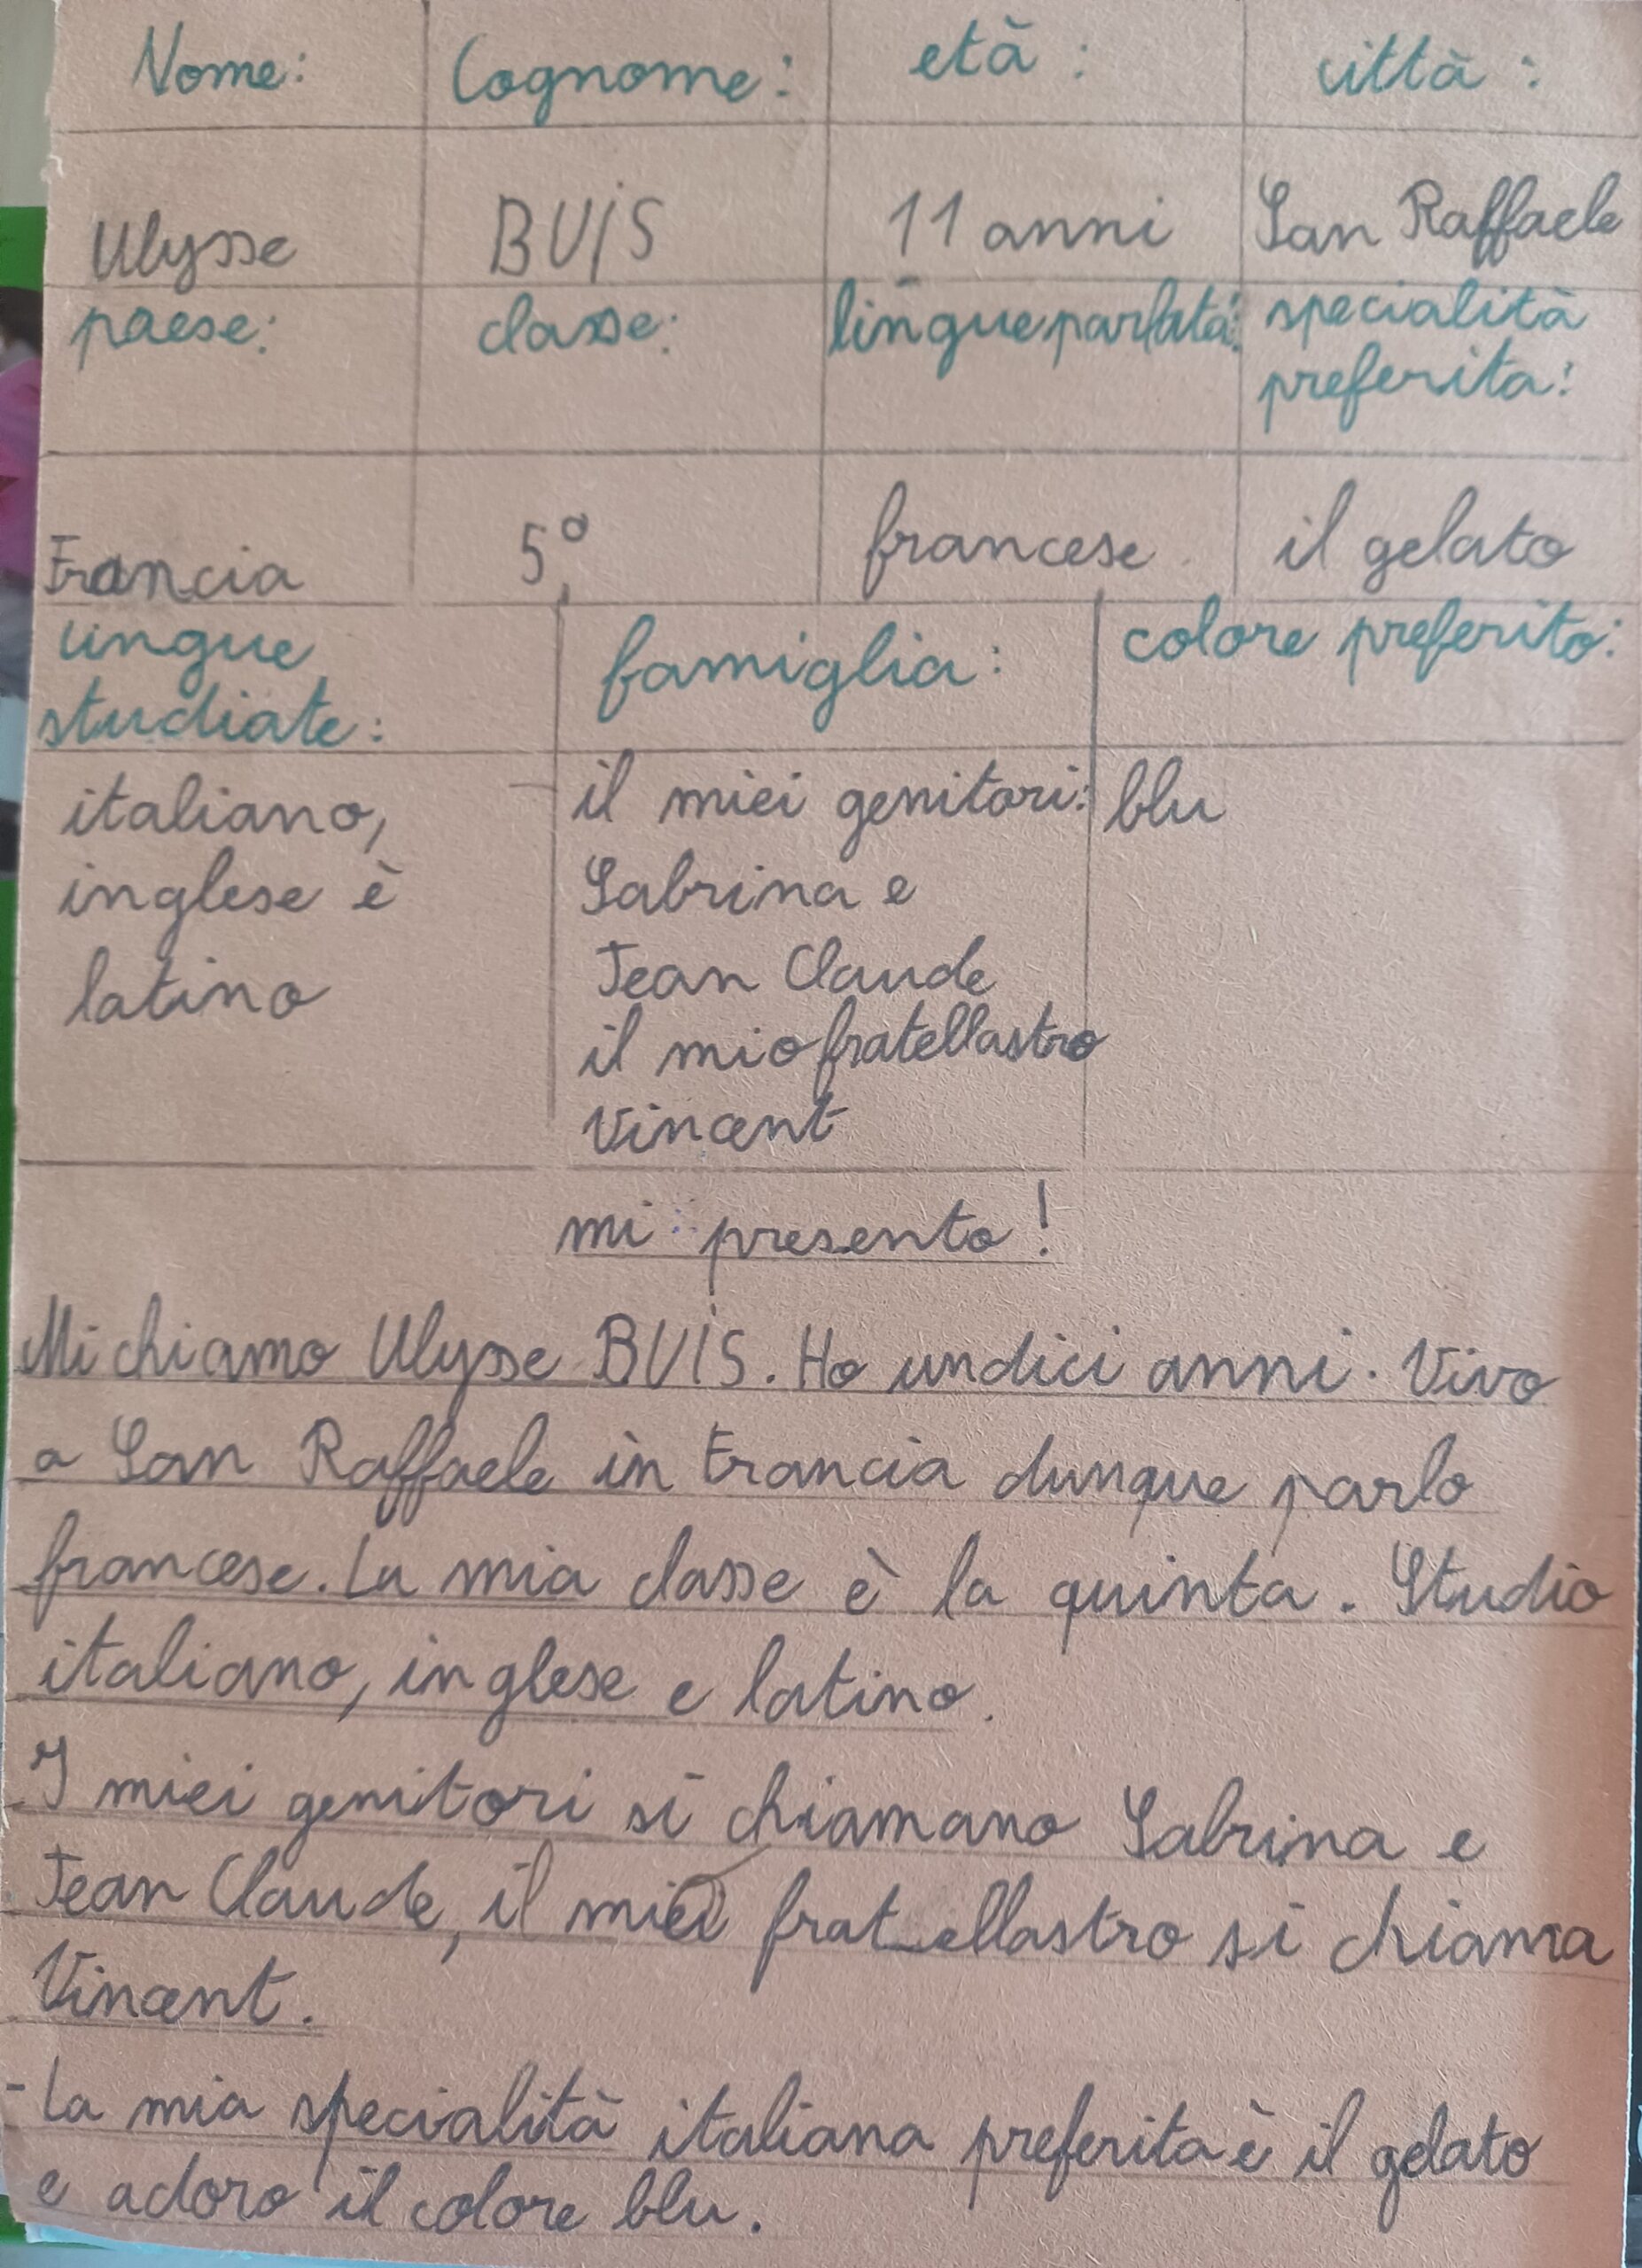 Nome: Cognome: età : città :
Ulysse BUiS 11 anni San Raffaele
paese: classe: lingue parlata: specialità
preferita:
Francia 5° francese il gelato
lingue famiglia: colore preferito:
studiate:
italiano, il miei genitori: blu
inglese è Sabrina e
latino Jean Claude
il mio fratellastro
Vincent
mi presento!
Mi chiamo Ulysse BUiS. Ho undici anni. Vivo
a San Raffaele in Francia dunque parlo
francese. La mia classe è la quinta. Studio
italiano, inglese e latino.
I miei genitori si chiamano Sabrina e
Jean Claude, il miei fratellastro si chiama
Vincent.
- La mia specialità italiana preferita è il gelato
e adoro il colore blu.